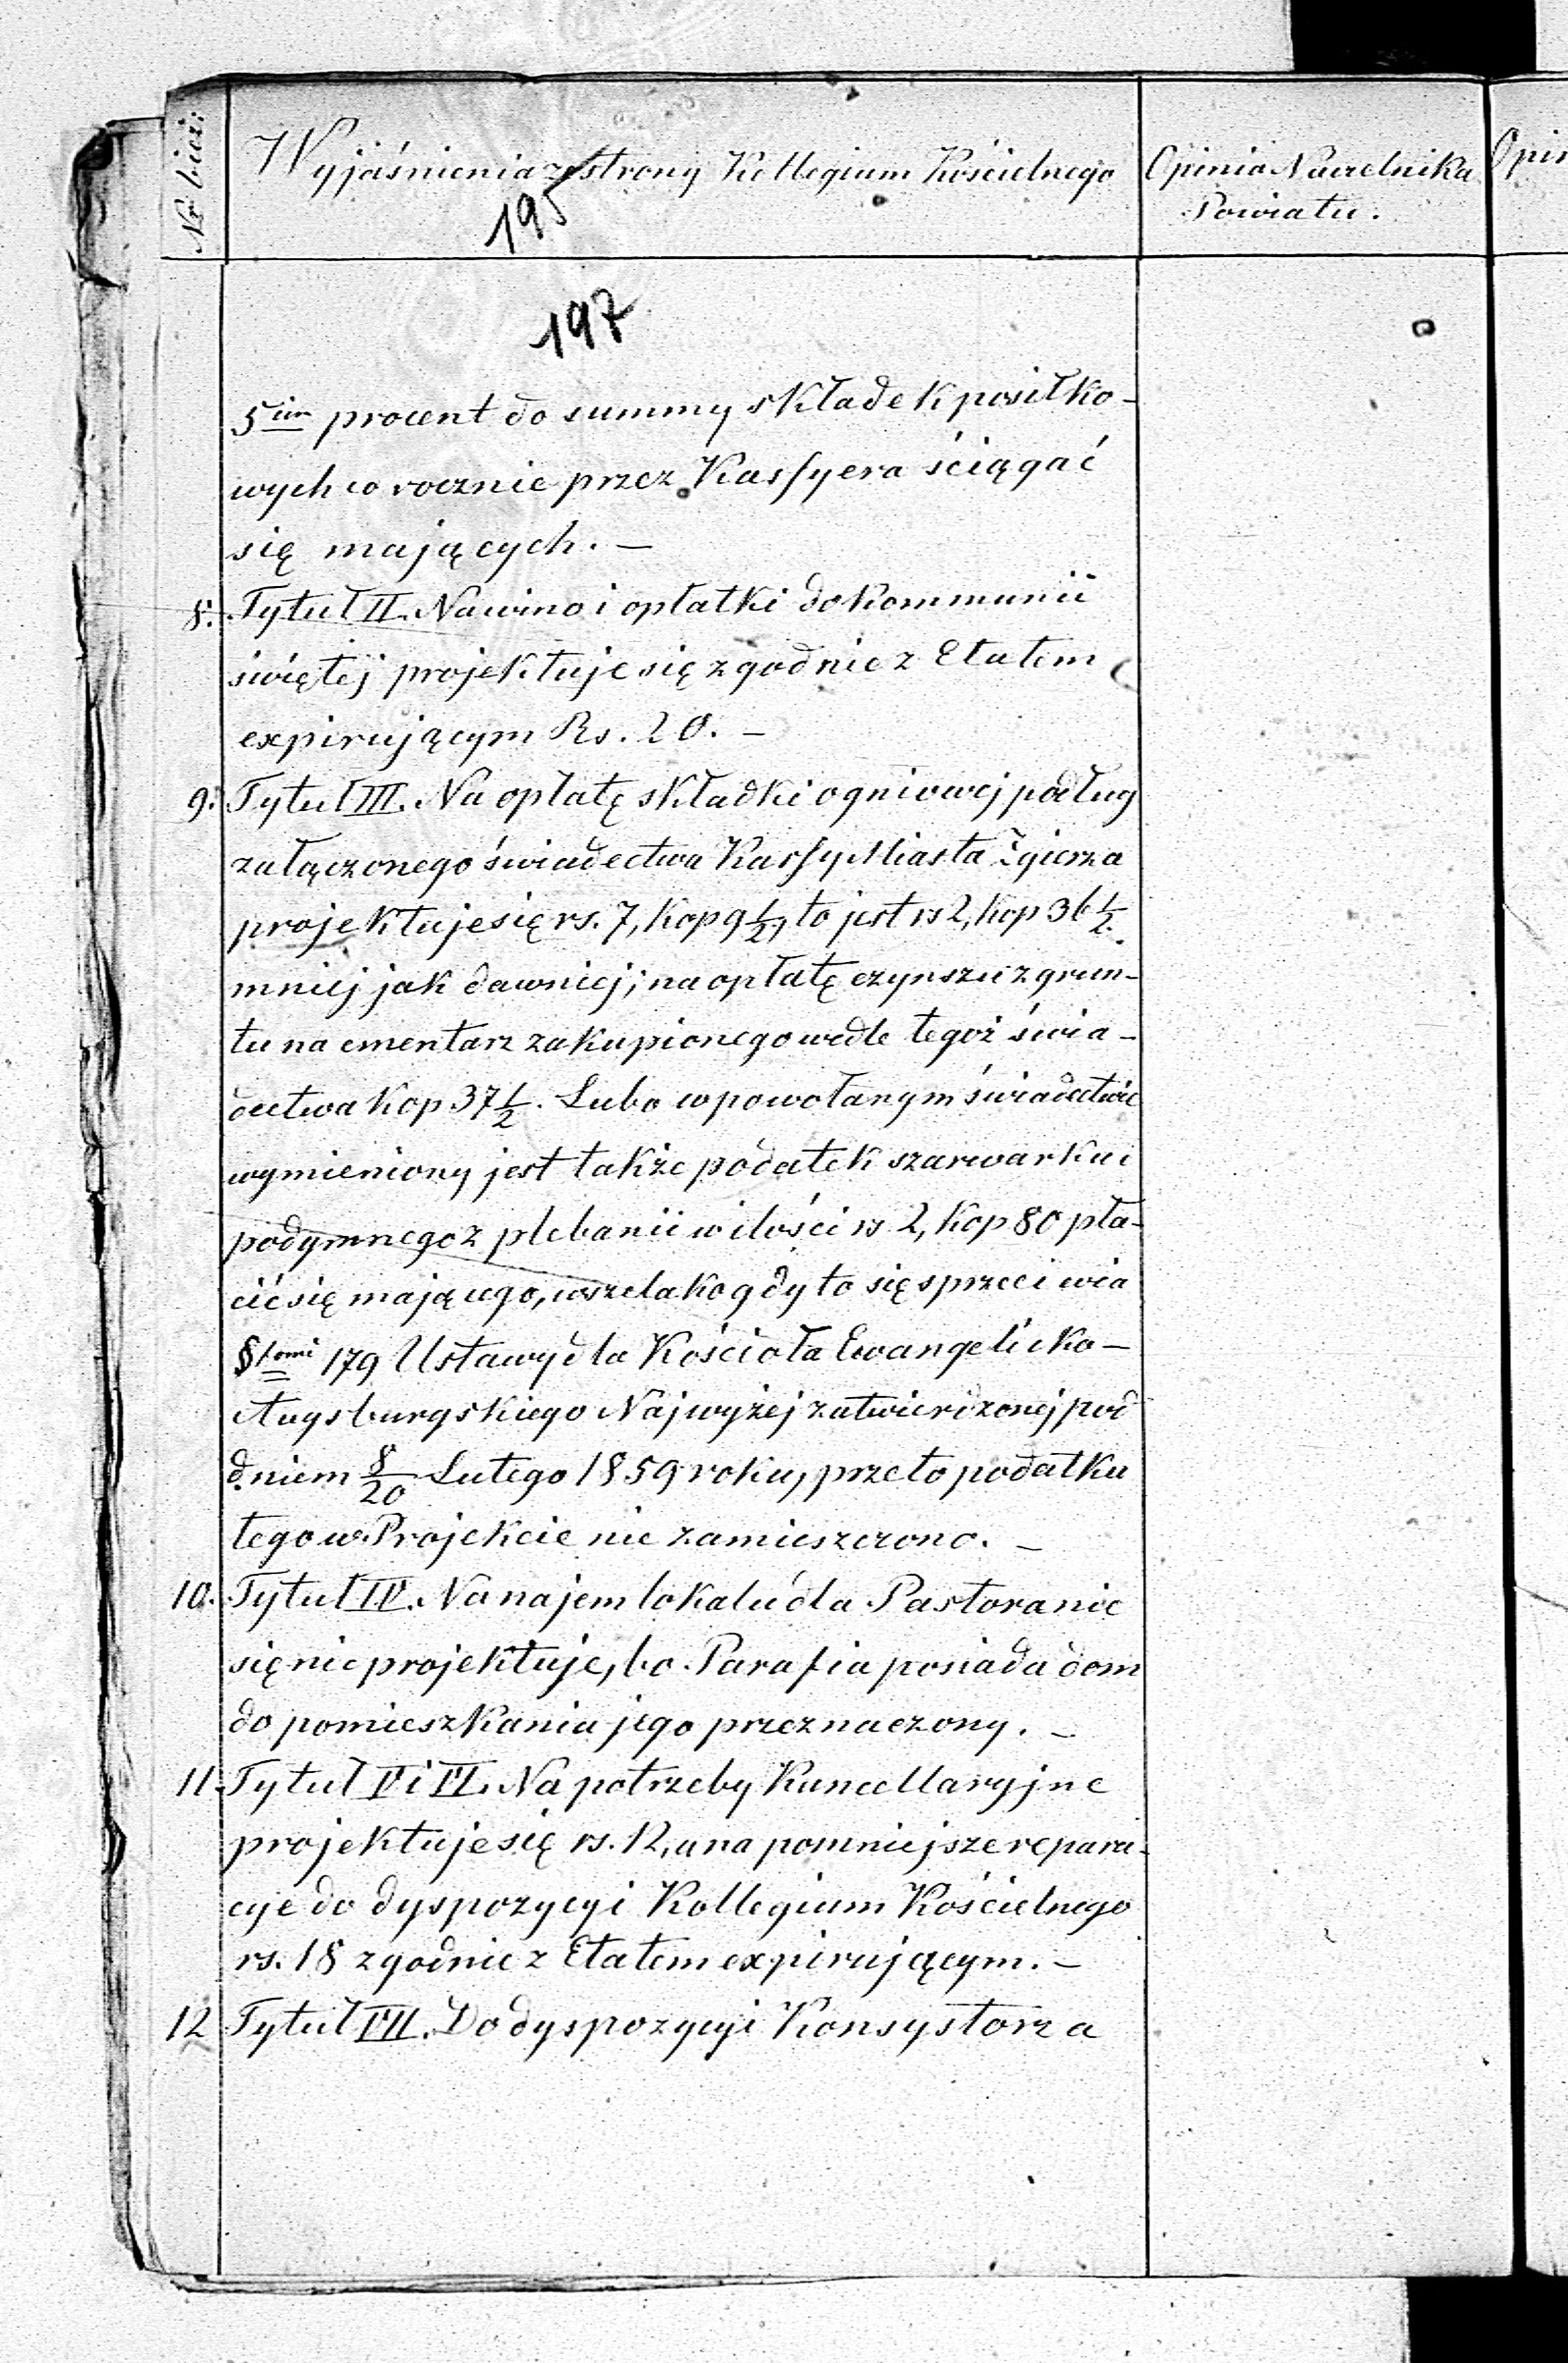 Nr bież:
Wyjaśnienia ze strony Kollegium Kościelnego
Opinia Naczelnika
Powiatu.
Opin
195
197
5im procent do summy składek posiłko-
wych co rocznie przez Kassyera ściągać
się mających. —
8. Tytuł II. Na wino i opłatki do Kommunii
świętej projektuje się zgodnie z Etatem
expirującym Rs. 20. —
9. Tytuł III. Na opłatę składki ogniowej podług
załączonego świadectwa Kassy Miasta Zgierza
projektuje się rs. 7, kop 9 1/2, to jest rs 2, kop 36 1/2.
mniej jak dawniej; na opłatę czynszu z grun-
tu na cmentarz zakupionego wedle tegoż świa-
dectwa kop 37 1/2. Lubo w powołanym świadectwie
wymieniony jest także podatek szarwarku i
podymnego z plebanii w ilości rs 2, kop 80 pła-
cić się mającego, wszelako gdy to się sprzeciwia
§fowi 179 Ustawy dla Kościoła Ewangelicko-
Augsburgskiego Najwyżej zatwierdzonej pod
dniem 8/20 Lutego 1859 roku, przeto podatku
tego w Projekcie nie zamieszczono. —
10. Tytuł IV. Na najem lokalu dla Pastora nic
się nie projektuje, bo Parafia posiada dom
do pomieszkania jego przeznaczony. —
11. Tytuł V i VI. Na potrzeby Kancellaryjne
projektuje się rs. 12, a na pomniejsze repara-
cye do dyspozycyi Kollegium Kościelnego
rs. 18 zgodnie z Etatem expirującym. —
12 Tytuł VII. Do dyspozycyi Konsystorza